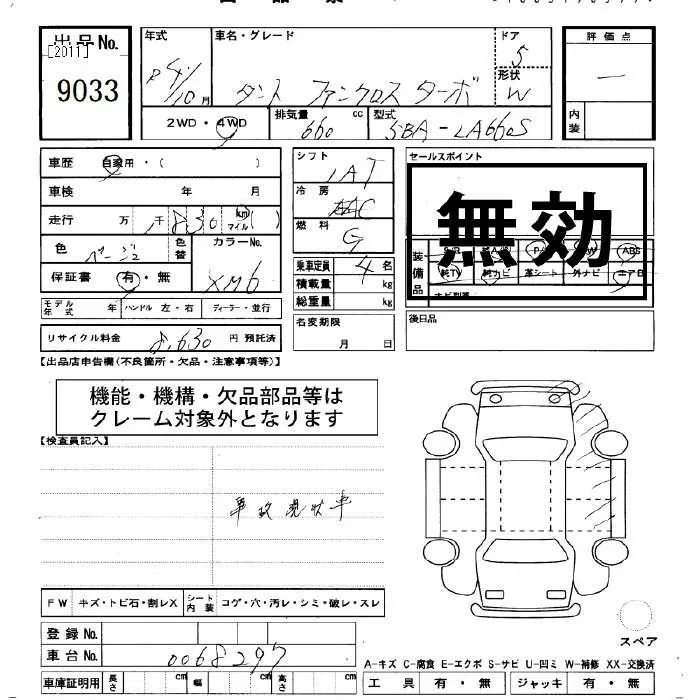 出品No.
[2011]
9033
年式
R4/10月
車名・グレード
タント ファンクロス ターボ
ドア
5
形状
W
評価点
一
内装
2WD・4WD
排気量
660
cc
型式
5BA-LA660S
車歴
自家用・( )
車検 年 月
走行 万 千 830 km マイル( )
色
ベージュ
色替
カラーNo.
XM6
保証書 有・無
モデル年式 年
ハンドル 左・右
ディーラー・並行
リサイクル料金 8,630 円 預託済
シフト
IAT
冷房
AAC
燃料
G
乗車定員 4 名
積載量 kg
総重量 kg
名変期限
月 日
セールスポイント
無効
装備品
ABS
純TV 純ナビ 革シート 外ナビ エアB
後日品
【出品店申告欄(不良箇所・欠品・注意事項等)】
機能・機構・欠品部品等は
クレーム対象外となります
【検査員記入】
事故現状車
FW キズ・トビ石・割レX
シート内装 コゲ・穴・汚レ・シミ・破レ・スレ
登録No.
車台No. 0068297
車庫証明用 長さ cm 幅 cm 高さ cm
スペア
A-キズ C-腐食 E-エクボ S-サビ U-凹ミ W-補修 XX-交換済
工具 有・無 ジャッキ 有・無